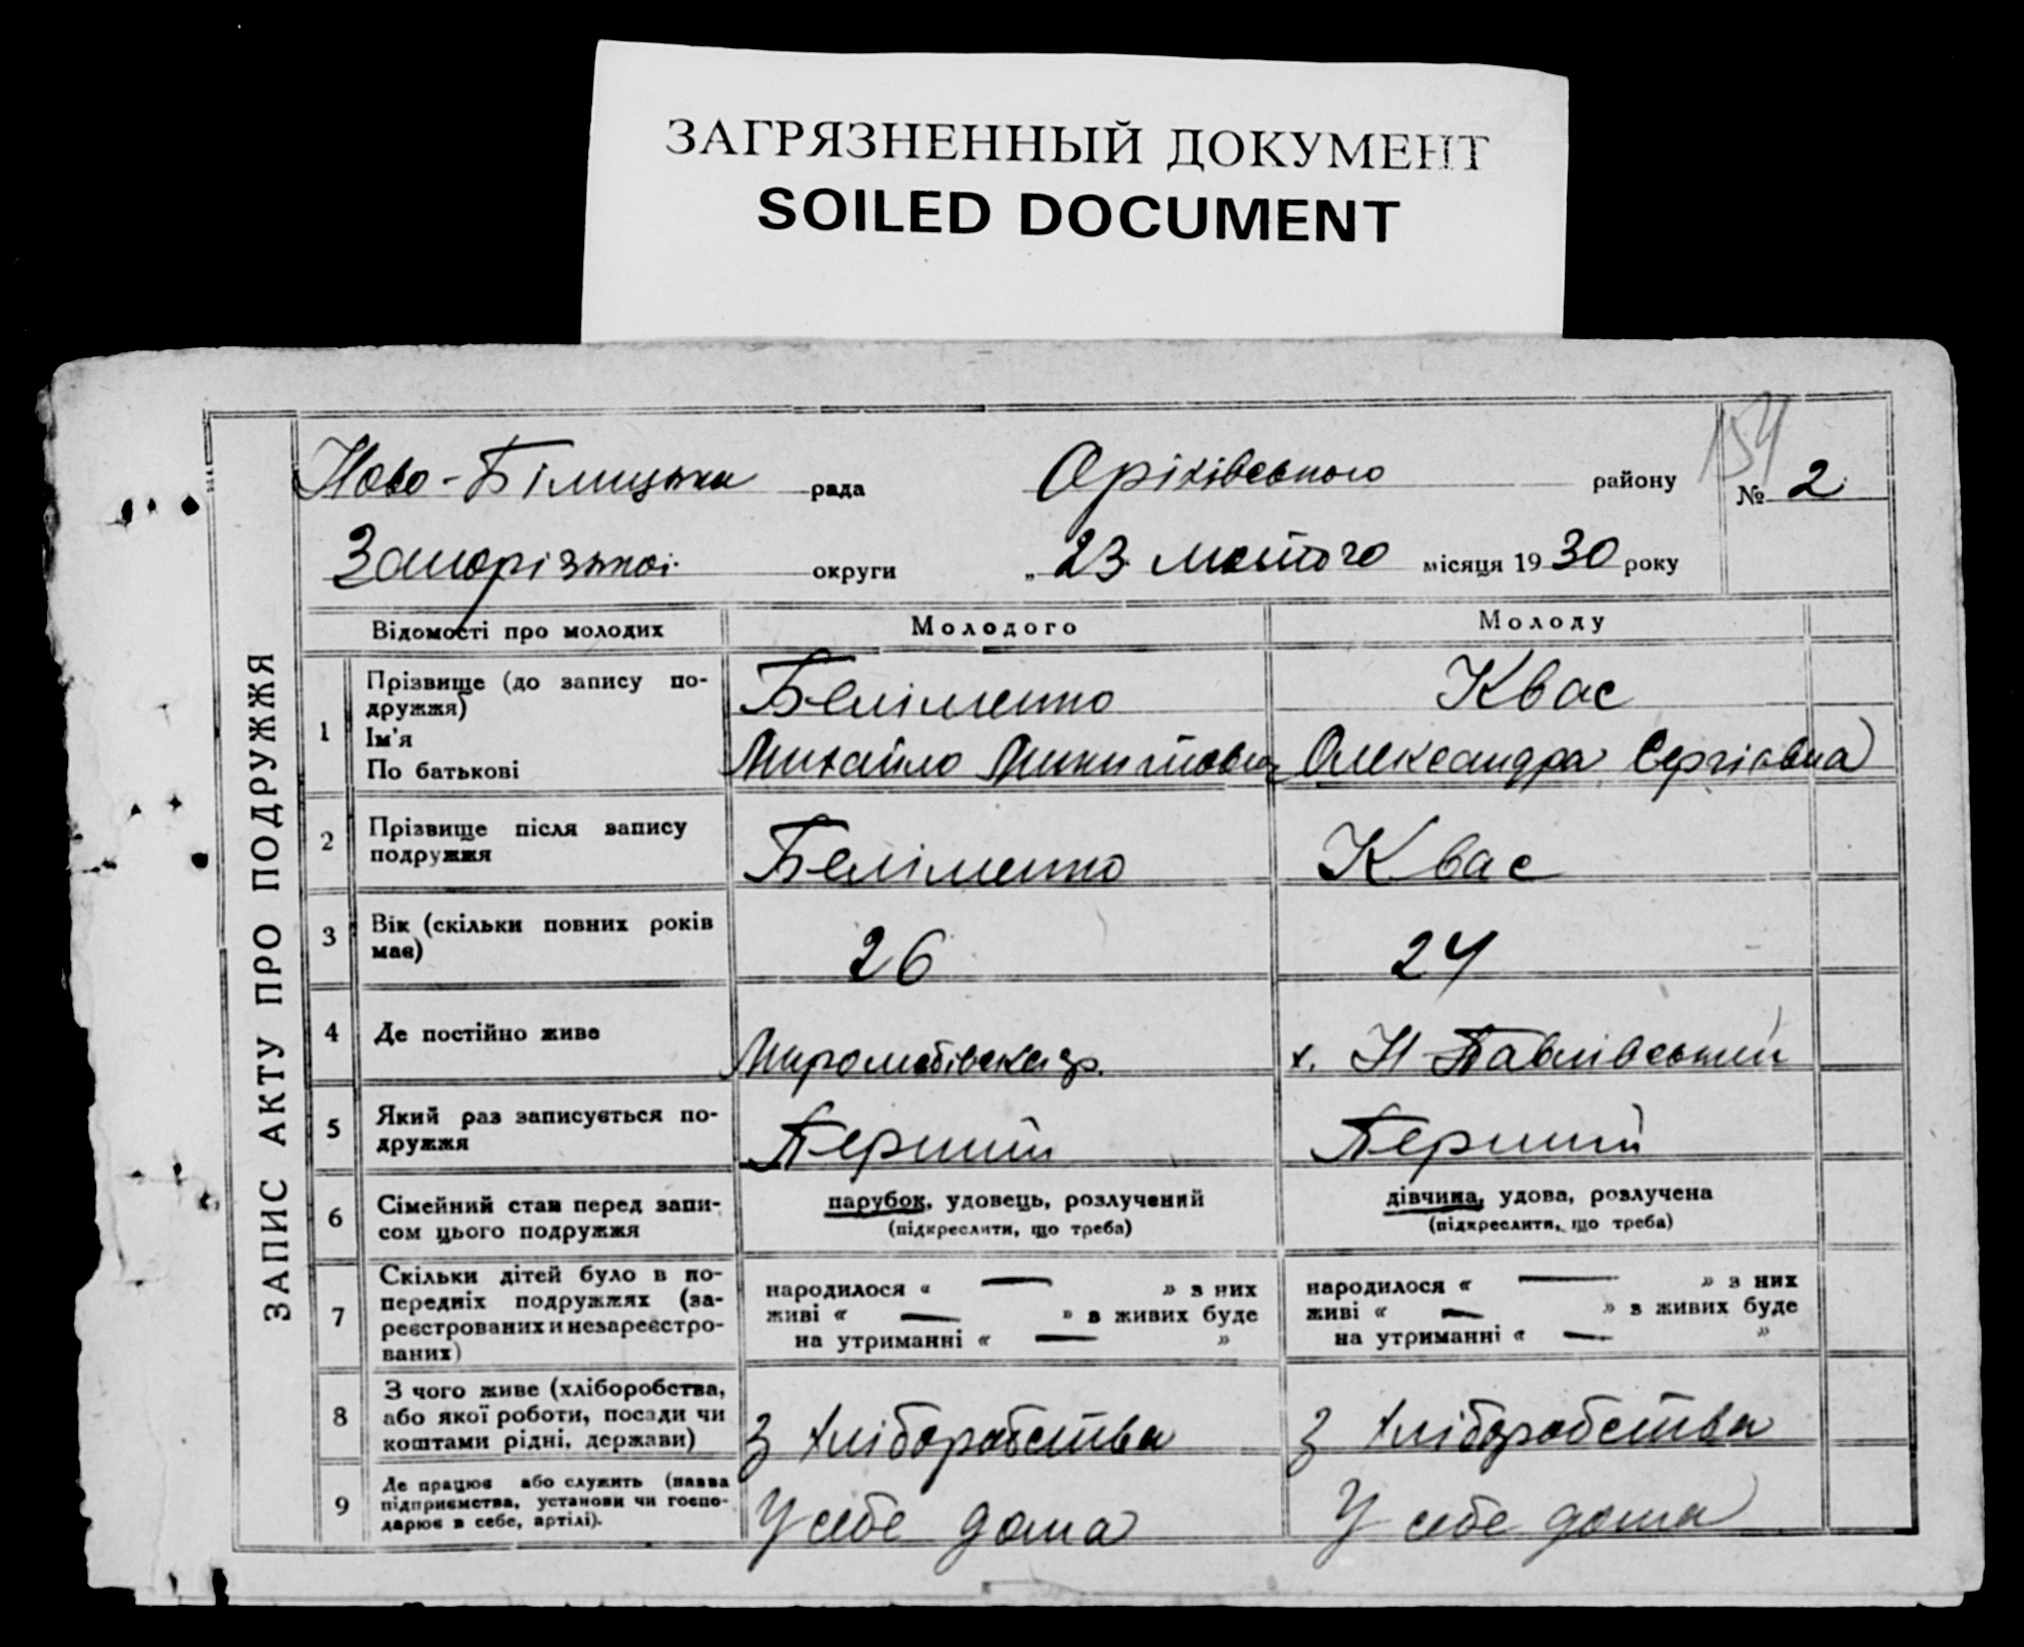 ЗАГРЯЗНЕННЫЙ ДОКУМЕНТ
SOILED DOCUMENT
154
Ново-Білицька рада Оріхівського району № 2
Запорізької округи „ 23 лютого місяця 1930 року
ЗАПИС АКТУ ПРО ПОДРУЖЖЯ
Відомості про молодих Молодого Молоду
1 Прізвище (до запису по-
дружжя)
Ім'я
По батькові
Беліменко Квас
Михайло Микитович Олександра Сергієвна
2 Прізвище після запису
подружжя
Беліменко Квас
3 Вік (скільки повних років
має)
26 24
4 Де постійно живе
х. Н Павлівський
5 Який раз записується по-
дружжя
Перший Перший
6 Сімейний стан перед запи-
сом цього подружжя
парубок, удовець, розлучений дівчина, удова, розлучена
(підкреслити, що треба) (підкреслити, що треба)
7 Скільки дітей було в по-
передніх подружжях (за-
реєстрованих и незареєстро-
ваних)
народилося « — » з них народилося « — » з них
живі « — » з живих буде живі « — » з живих буде
на утриманні « — » на утриманні « — »
8 З чого живе (хліборобства,
або якої роботи, посади чи
коштами рідні, держави)
З хліборобства З хліборобства
9 Де працює або служить (назва
підприємства, установи чи госпо-
дарює в себе, артілі).
У себе дома У себе дома